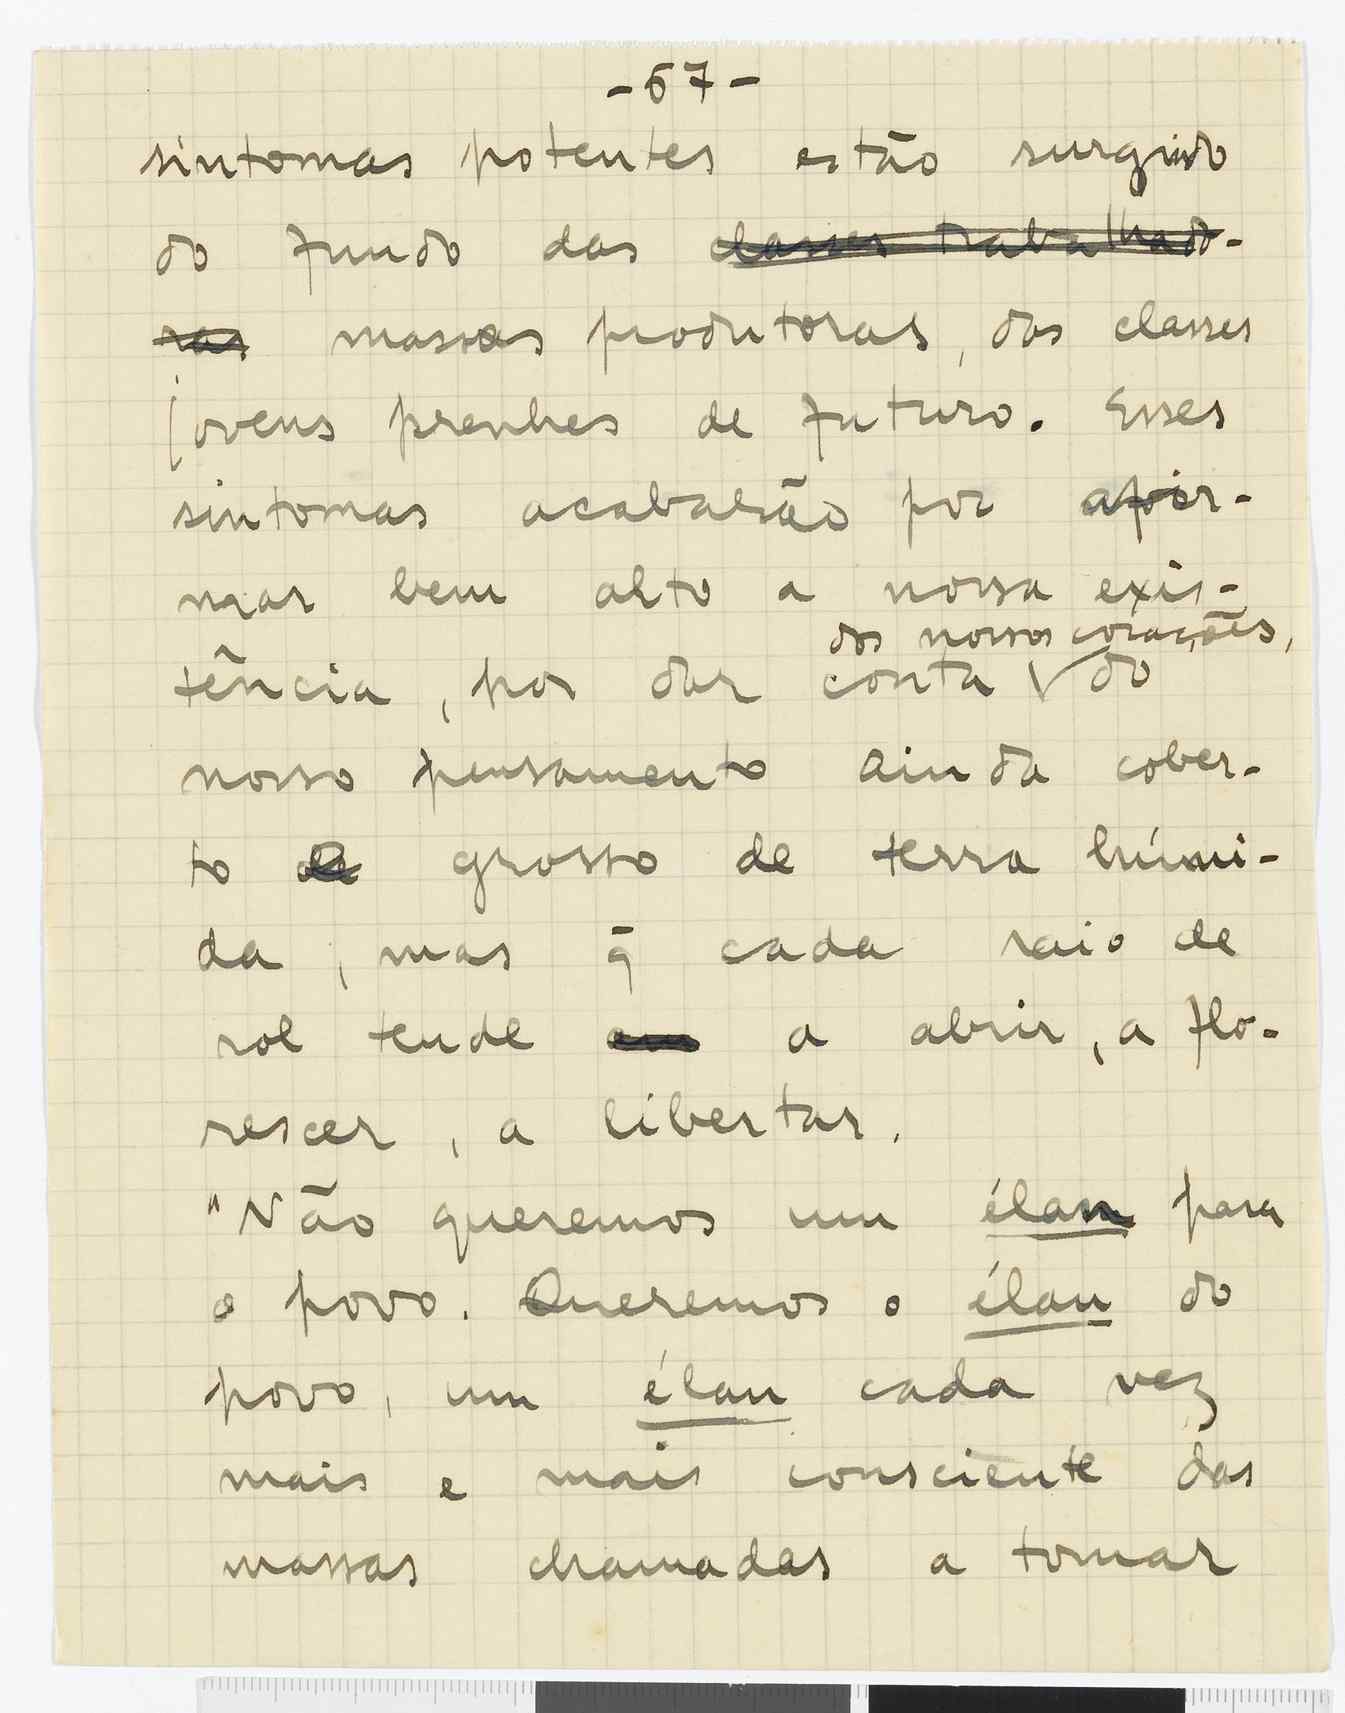 -57-
sintomas potentes estão surgindo
do fundo das classes trabalhado-
ras massas produtoras, das classes
jovens prenhes de futuro. Esses
sintomas acabarão por afir-
mar bem alto a nossa exis-
dos nossos corações,
tência, por dar conta do
nosso pensamento ainda cober-
to grosso de terra húmi-
da, mas q̄ cada raio de
sol tende a abrir, a flo-
rescer, a libertar.
"Não queremos um élan para
o povo. Queremos o élan do
povo, um élan cada vez
mais e mais consciente das
massas chamadas a tomar